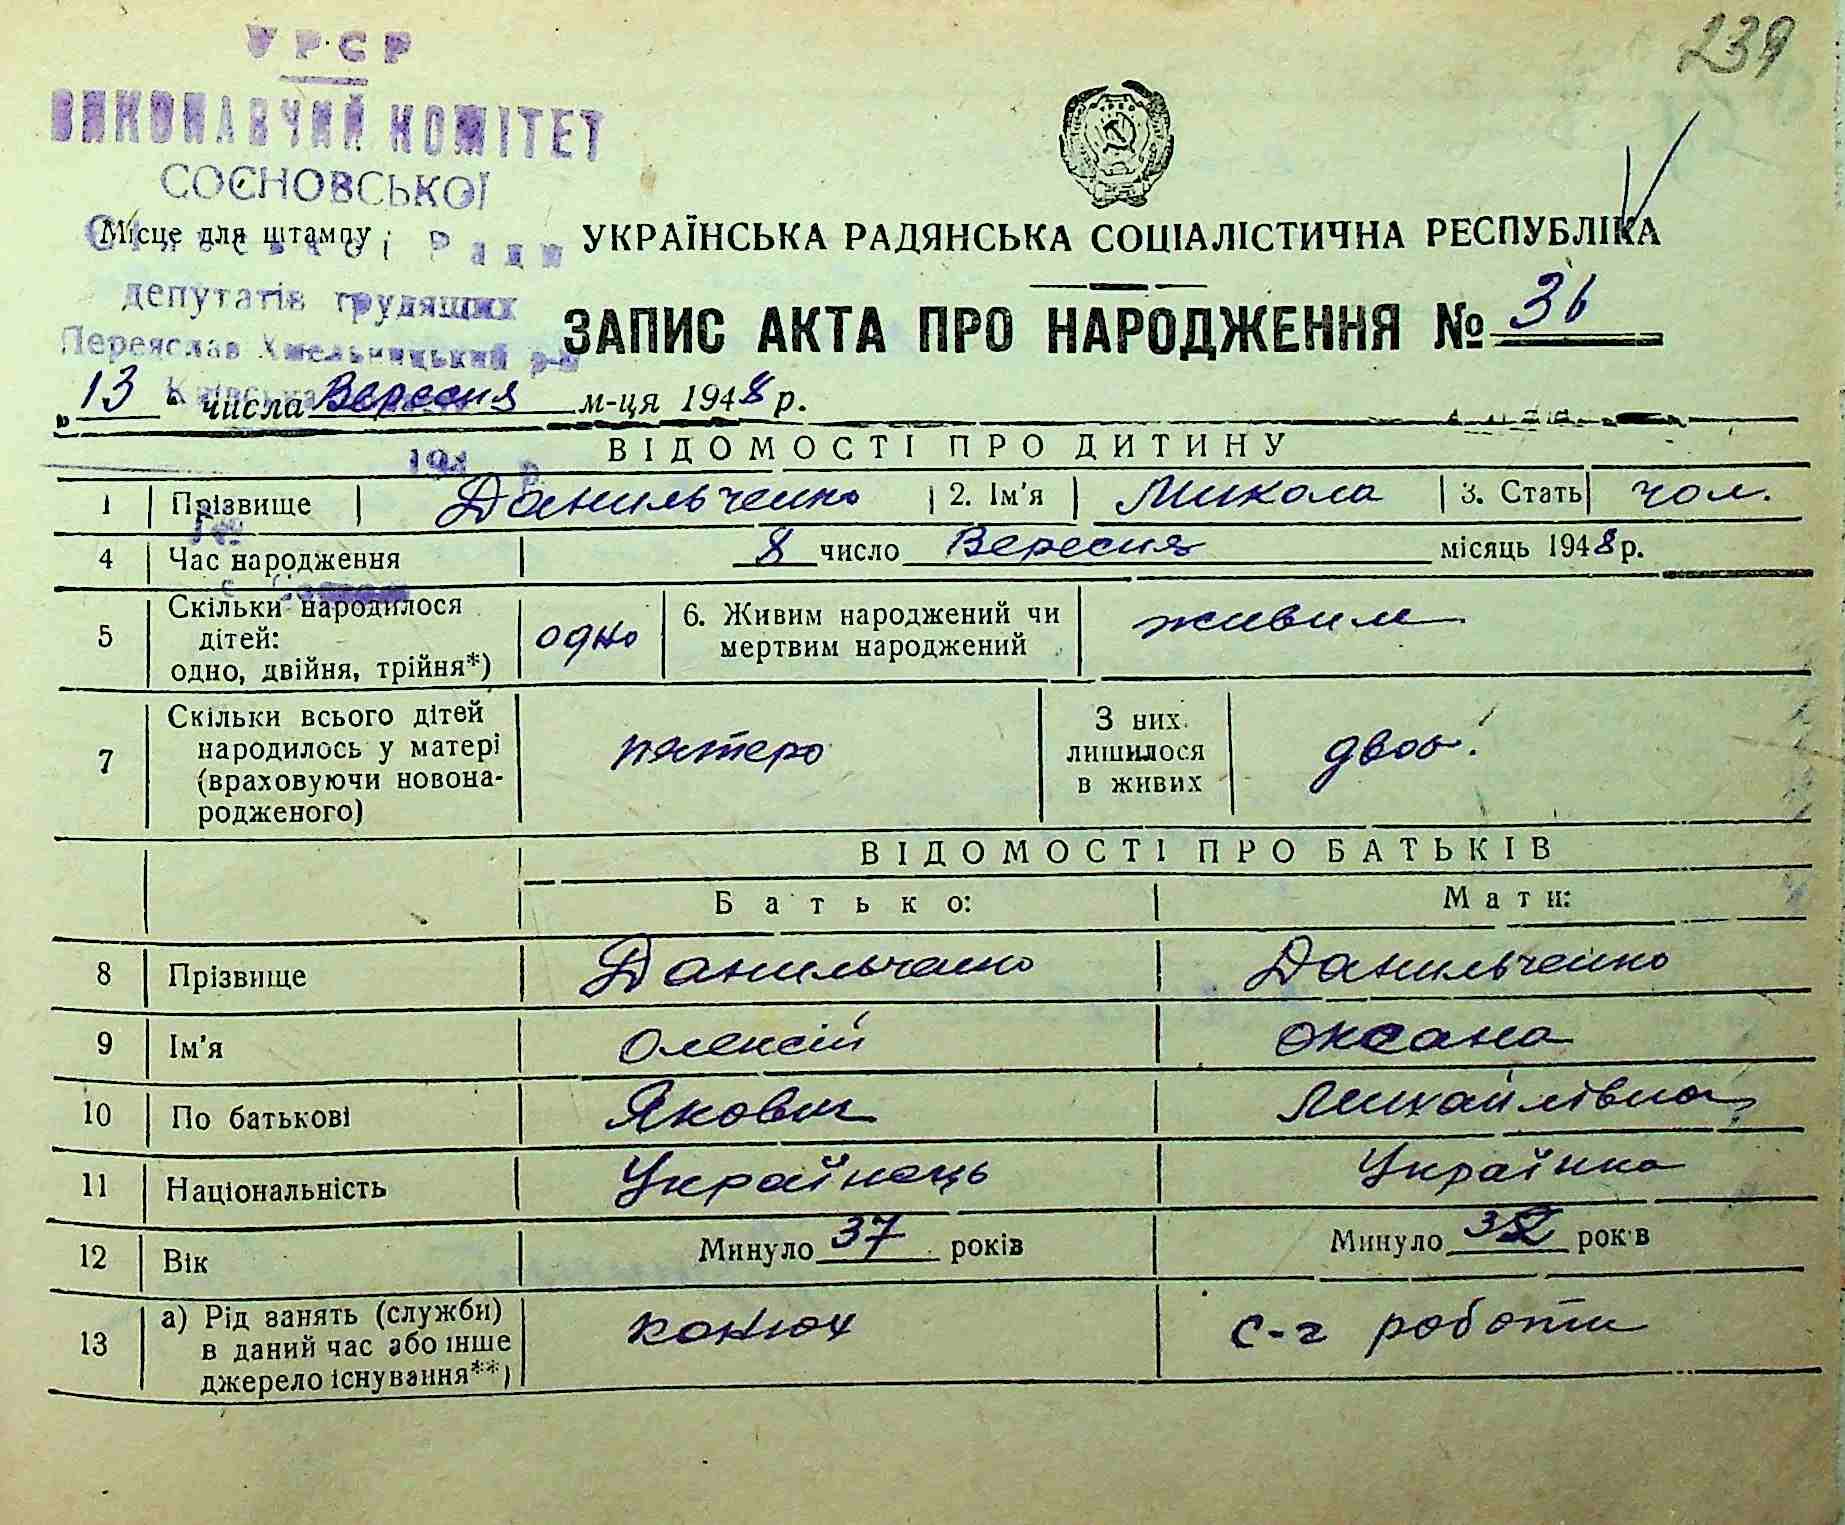 239
УРСР
ВИКОНАВЧИЙ КОМІТЕТ
СОСНОВСЬКОЇ
Місце для штампу
Сільської Ради
депутатів трудящих
Переяслав Хмельницький р-н
Київська
УКРАЇНСЬКА РАДЯНСЬКА СОЦІАЛІСТИЧНА РЕСПУБЛІКА
ЗАПИС АКТА ПРО НАРОДЖЕННЯ № 36
„13“ числа Вересня м-ця 1948 р.
194 р.
ВІДОМОСТІ ПРО ДИТИНУ
1 Прізвище Данильченко 2. Ім'я Микола 3. Стать чол.
4 Час народження 8 число Вересня місяць 1948 р.
5 Скільки народилося дітей: одно, двійня, трійня*) одно 6. Живим народжений чи мертвим народжений живим
7 Скільки всього дітей народилось у матері (враховуючи новонародженого) пятеро З них лишилося в живих двоє.
ВІДОМОСТІ ПРО БАТЬКІВ
Батько: Мати:
8 Прізвище Данильченко Данильченко
9 Ім'я Олексій Оксана
10 По батькові Якович Михайлівна
11 Національність Українець Українка
12 Вік Минуло 37 років Минуло 32 рок в
13 а) Рід занять (служби) в даний час або інше джерело існування**) конюх с-г роботи